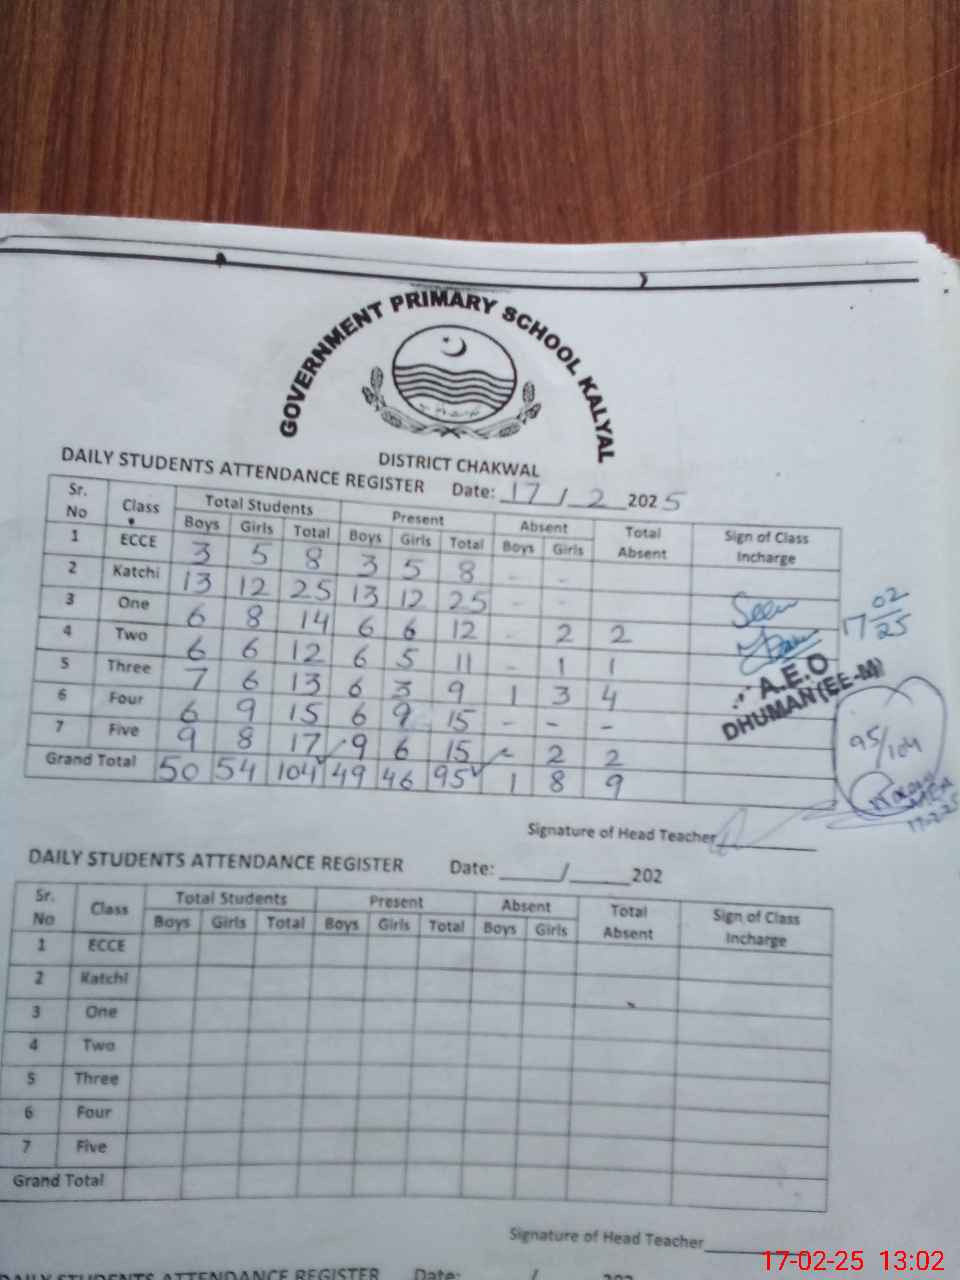 GOVERNMENT PRIMARY SCHOOL KALYAL
DISTRICT CHAKWAL
DAILY STUDENTS ATTENDANCE REGISTER Date: 17 / 2 2025
Sr. No Class Total Students Present Absent Total Absent Sign of Class Incharge
Boys Girls Total Boys Girls Total Boys Girls
1 ECCE 3 5 8 3 5 8 - -
2 Katchi 13 12 25 13 12 25 - -
3 One 6 8 14 6 6 12 - 2 2
4 Two 6 6 12 6 5 11 - 1 1
5 Three 7 6 13 6 3 9 1 3 4
6 Four 6 9 15 6 9 15 - - -
7 Five 9 8 17 9 6 15 - 2 2
Grand Total 50 54 104 49 46 95 1 8 9
Seen
17 02/25
A.E.O
DHUMAN (EE-M)
95/104
17-2-25
Signature of Head Teacher
DAILY STUDENTS ATTENDANCE REGISTER Date: ______/______202
Sr. No Class Total Students Present Absent Total Absent Sign of Class Incharge
Boys Girls Total Boys Girls Total Boys Girls
1 ECCE
2 Katchi
3 One
4 Two
5 Three
6 Four
7 Five
Grand Total
Signature of Head Teacher
DAILY STUDENTS ATTENDANCE REGISTER Date: / 202
17-02-25 13:02